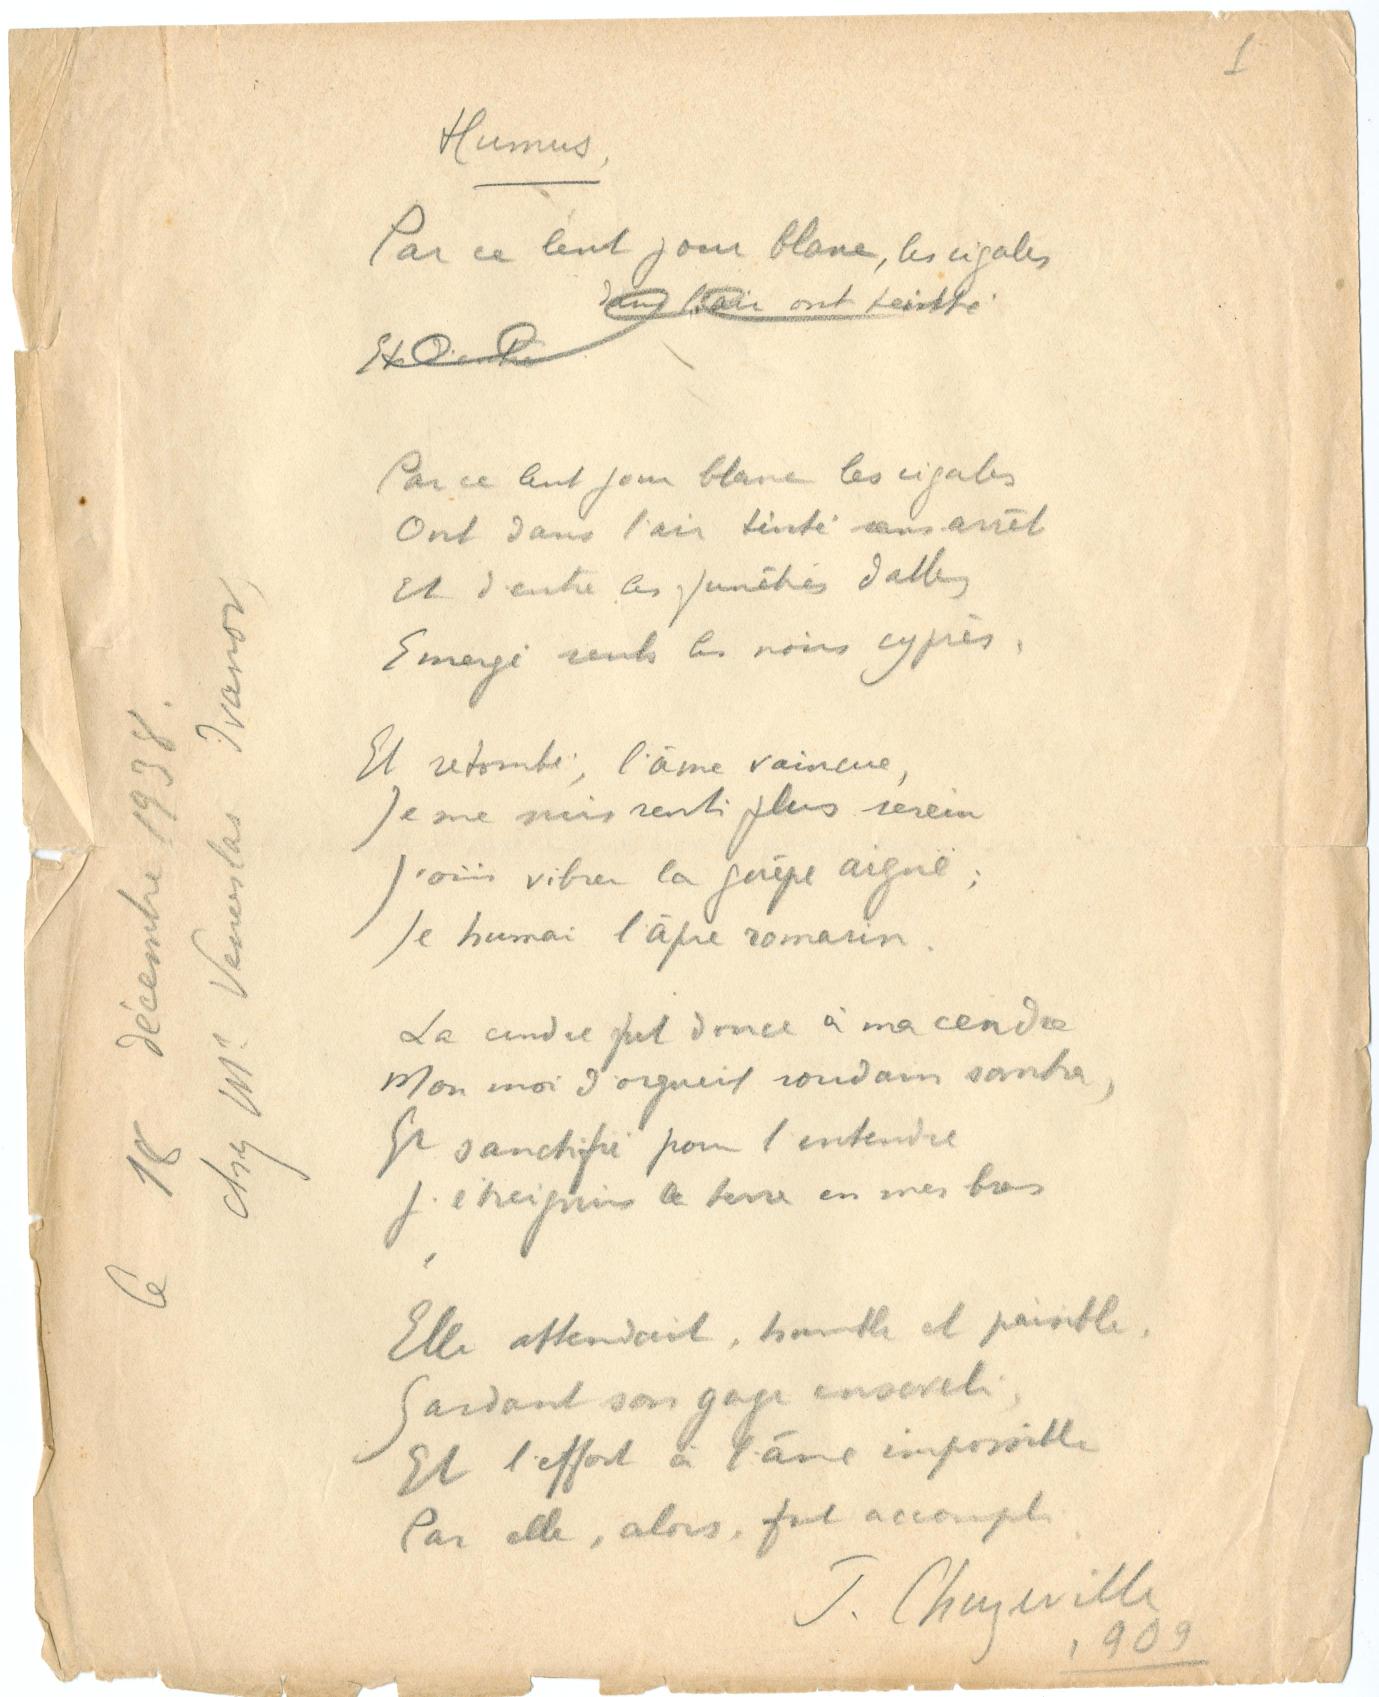 1
Humus,
Par ce lent jour blanc, les cigales
dans l'air ont teinté
Et d'entre
Par ce lent jour blanc les cigales
Ont dans l'air tinté sans arrêt
Et d'entre les funèbres dalles
Emergé seuls les noirs cyprès.
Et retombé, l'âme vaincue,
Je me suis senti plus serein
J'ouïs vibrer la guêpe aiguë ;
Je humai l'âpre romarin.
La cendre fut douce à ma cendre
Mon moi d'orgueil soudain sombra,
Et sanctifié pour l'entendre
J'étreignis la terre en mes bras
Elle attendait, humble et paisible,
Gardant son gage enseveli,
Et l'effort à l'âme impossible
Par elle, alors, fut accompli.
J. Chuzeville
1909
Ce 18 décembre 1938.
chez Mr Venceslas Ivanov,